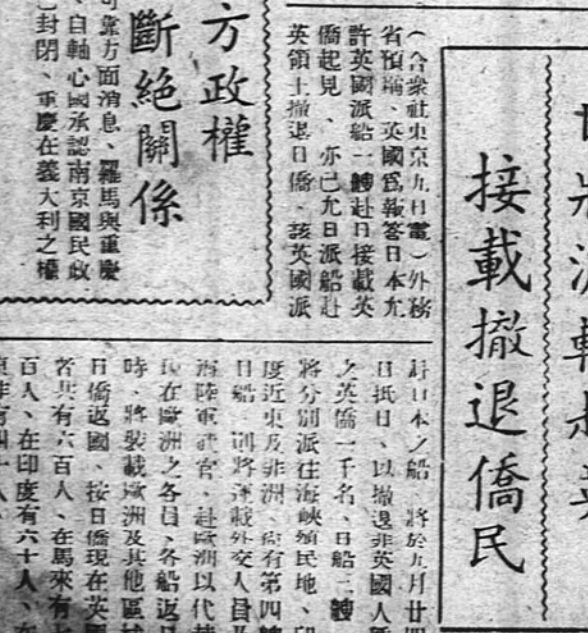 接載撤退僑民
（合衆社東京九日電）外務
省預痛、英國爲報答日本允
許英國派船一艘赴日接載英
僑起見、亦已允日派船赴
英領土撤退日僑、該英國派
赴日本之船、將於九月廿四
日抵日、以撤退非英國人
之英僑一千名、日船三艘
將分別派往海峽殖民地、印
度近東及非洲、尙有第四艘
日船、則將運載外交人員及
海陸軍武官、赴歐洲以代替
現在歐洲之各員、各船返日
時、將裝載歐洲及其他區域
日僑返國、按日僑現在英國
者共有六百人、在馬來有七
百人、在印度有六十人、在
方政權
斷絕關係
可靠方面消息、羅馬與重慶
、自軸心國承認南京國民政
已封閉、重慶在義大利之權